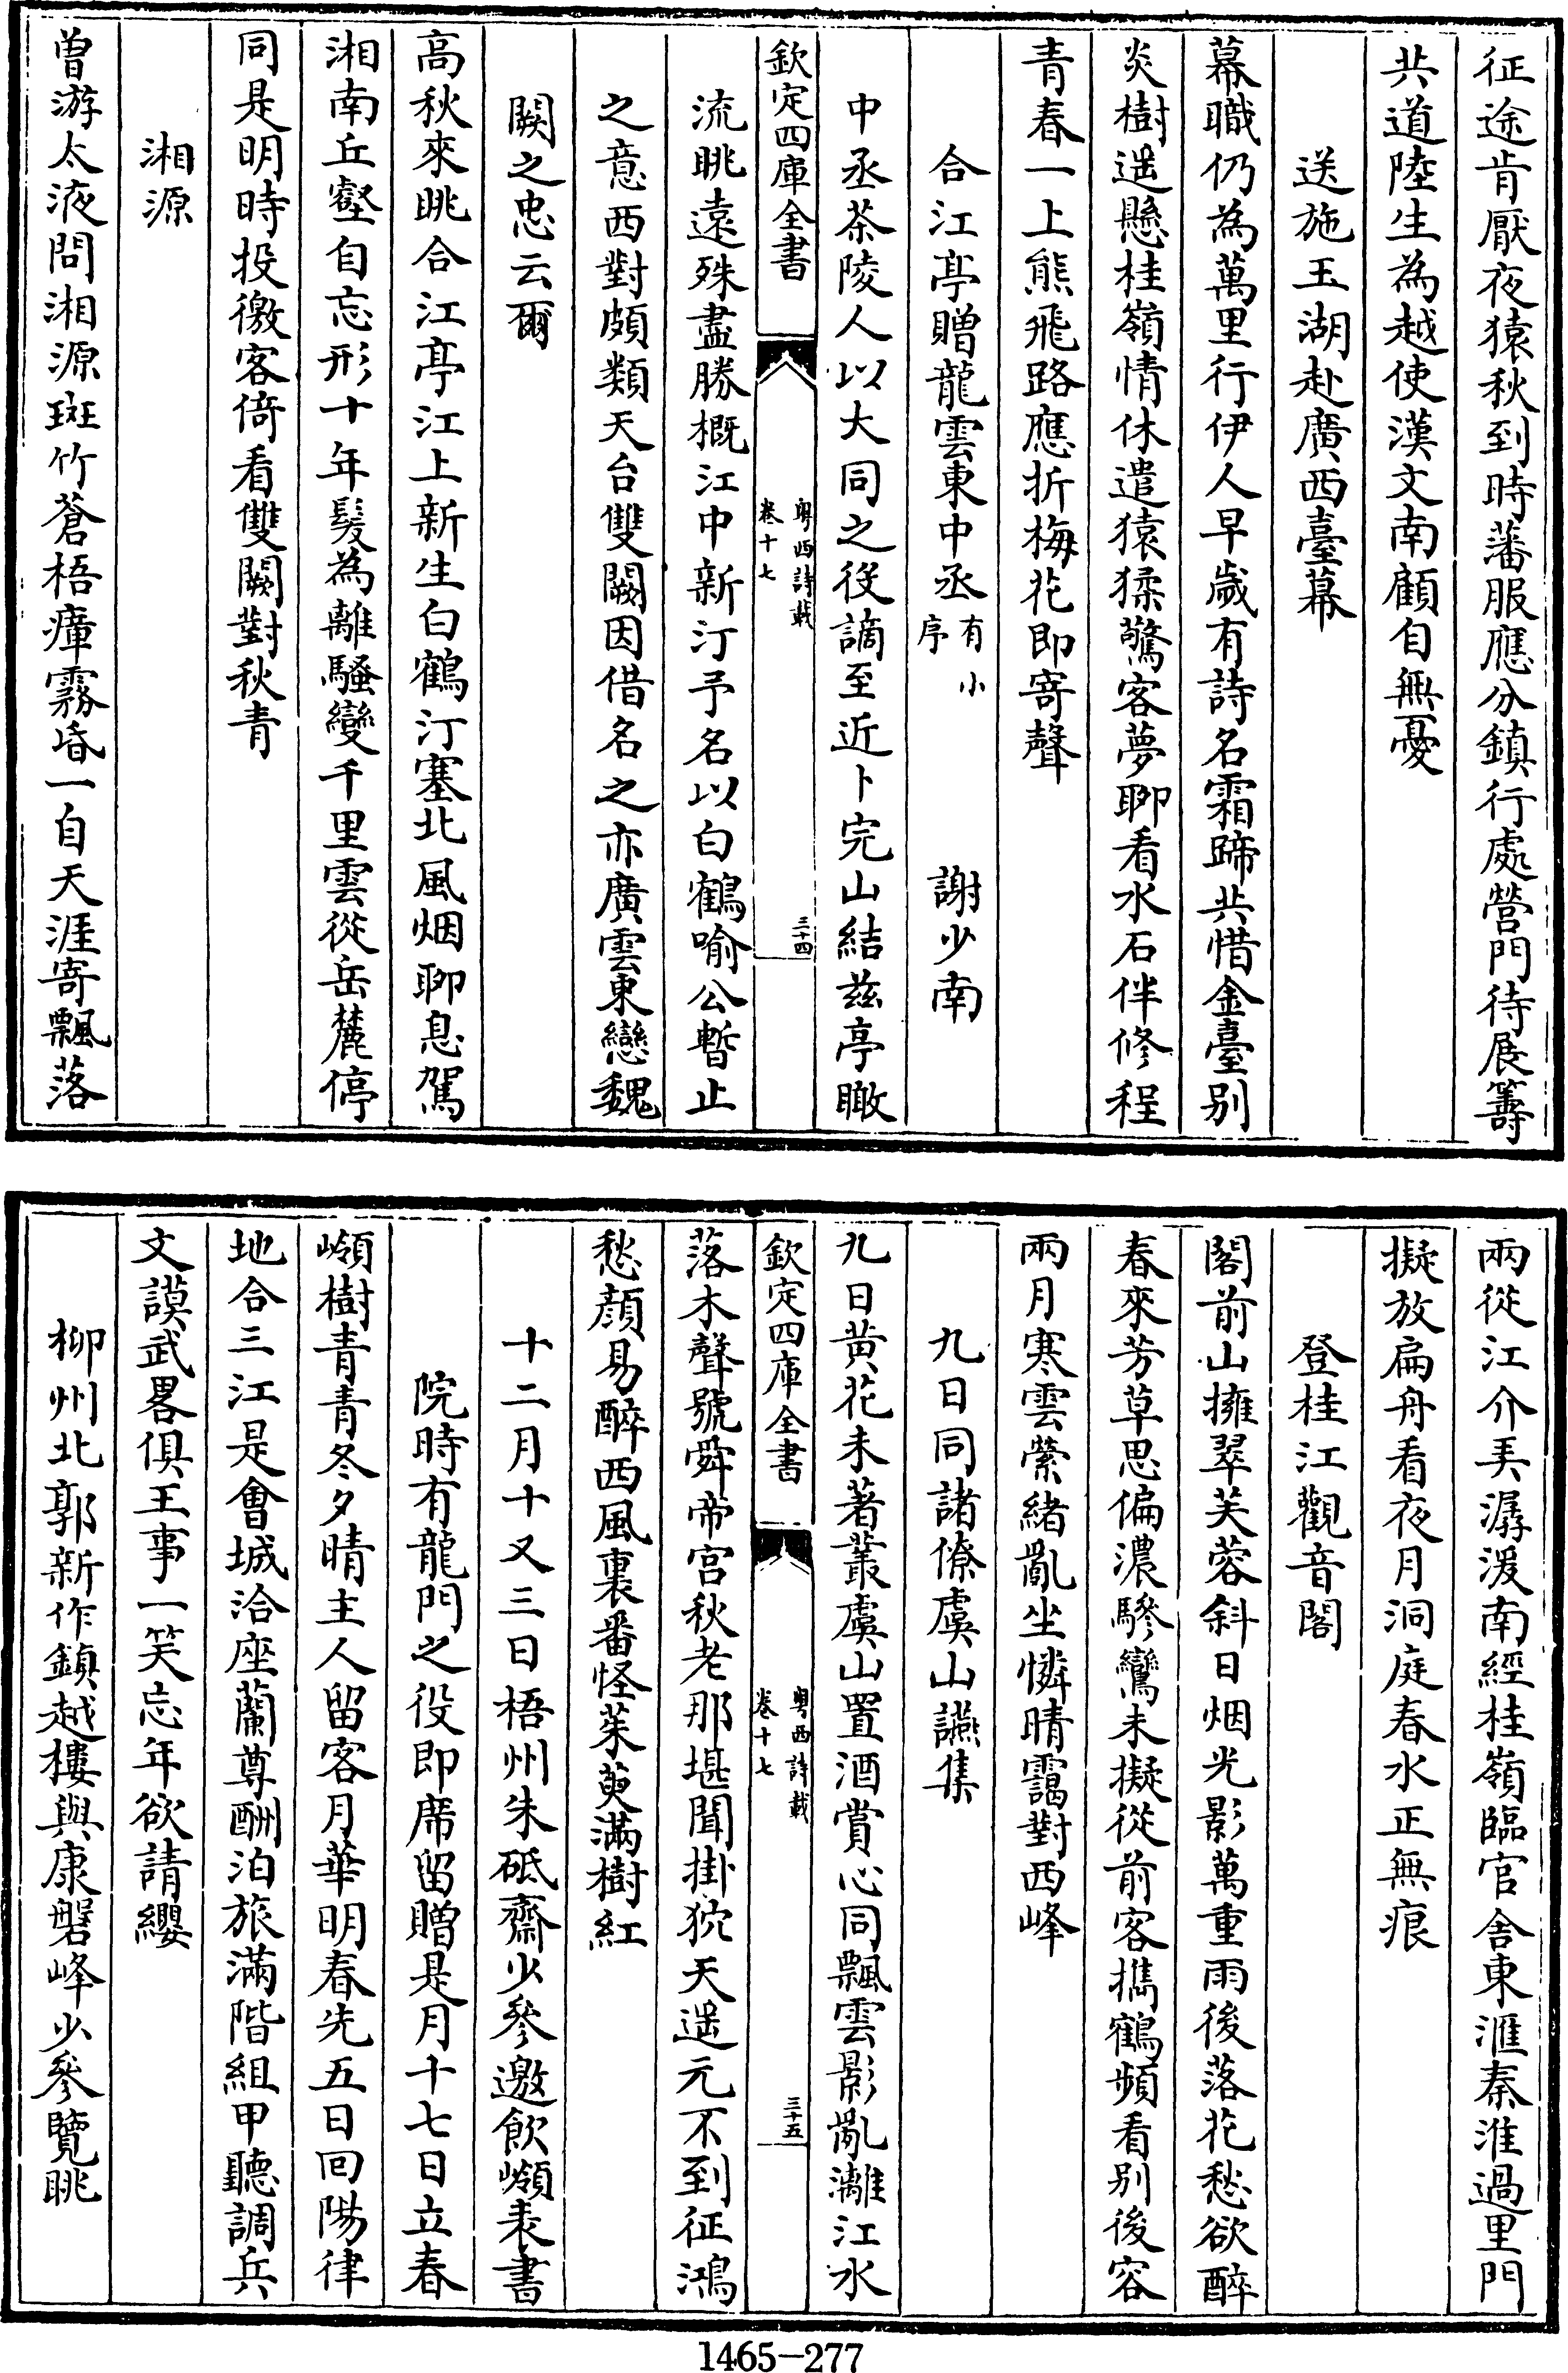 征途肯厭夜猿秋到時藩服應分鎮行處營門待展籌
共道陸生為越使漢文南顧自無憂
送施玉湖赴廣西臺幕
幕職仍為萬里行伊人早歲有詩名霜蹄共惜金臺别
炎樹遥懸桂嶺情休遣猿猱驚客夢聊看水石伴修程
青春一上熊飛路應折梅花即寄聲
合江亭贈龍雲東中丞有小序 謝少南
中丞茶陵人以大同之役謫至近卜完山結兹亭瞰
欽定四庫全書 粤西詩載 卷十七 三十四
流眺遠殊盡勝概江中新汀予名以白鶴喻公暫止
之意西對頗類天台雙闕因借名之亦廣雲東戀魏
闕之忠云爾
高秋來眺合江亭江上新生白鶴汀塞北風烟聊息駕
湘南丘壑自忘形十年髮為離騷變千里雲從岳麓停
同是明時投徼客倚看雙闕對秋青
湘源
曽游太液問湘源斑竹蒼梧瘴霧昏一自天涯寄飄落
兩從江介弄潺湲南經桂嶺臨官舍東滙秦淮過里門
擬放扁舟看夜月洞庭春水正無痕
登桂江觀音閣
閣前山擁翠芙蓉斜日烟光影萬重雨後落花愁欲醉
春來芳草思偏濃驂鸞未擬從前客携鶴頻看别後容
兩月寒雲縈緒亂坐憐晴靄對西峰
九日同諸僚虞山讌集
九日黄花未著叢虞山置酒賞心同飄雲影亂灕江水
欽定四庫全書 粤西詩載 卷十七 三十五
落木聲號舜帝宫秋老那堪聞掛狖天遥元不到征鴻
愁顔易醉西風裏番怪茱萸滿樹紅
十二月十又三日梧州朱砥齋少參邀飲嶺表書
院時有龍門之役即席留贈是月十七日立春
嶺樹青青冬夕晴主人留客月華明春先五日回陽律
地合三江是會城洽座蘭尊酬泊旅滿階組甲聽調兵
文謨武畧俱王事一笑忘年欲請纓
柳州北郭新作鎮越樓與康磐峰少參覽眺
1465-277